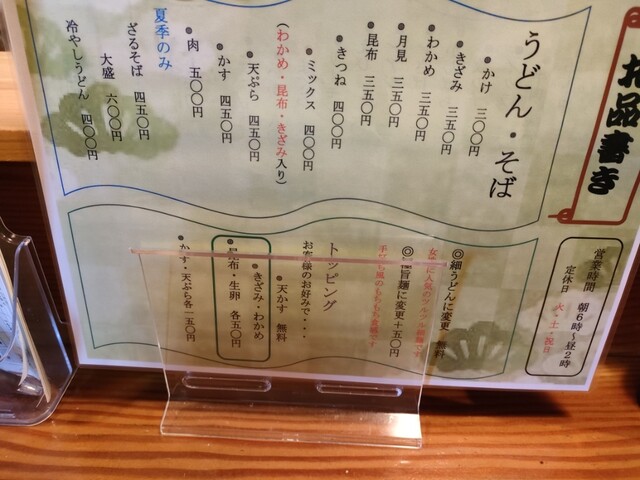 お品書き
うどん・そば
●かけ 三〇〇円
●きざみ 三五〇円
●わかめ 三五〇円
●月見 三五〇円
●昆布 三五〇円
●きつね 四〇〇円
●ミックス 四〇〇円
(わかめ・昆布・きざみ入り)
●天ぷら 四五〇円
●かす 四五〇円
●肉 五〇〇円
夏季のみ
ざるそば 四五〇円
大盛 六〇〇円
冷やしうどん 四〇〇円
営業時間 朝6時~昼2時
定休日 火・土・祝日
◎細うどんに変更 無料
女性に人気のツルツル細麺です
◎旨麺に変更+五〇円
手打ち風のもちもち食感です
トッピング
お客様のお好みで・・・
●天かす 無料
●きざみ・わかめ
●昆布・生卵 各五〇円
●かす・天ぷら各一五〇円